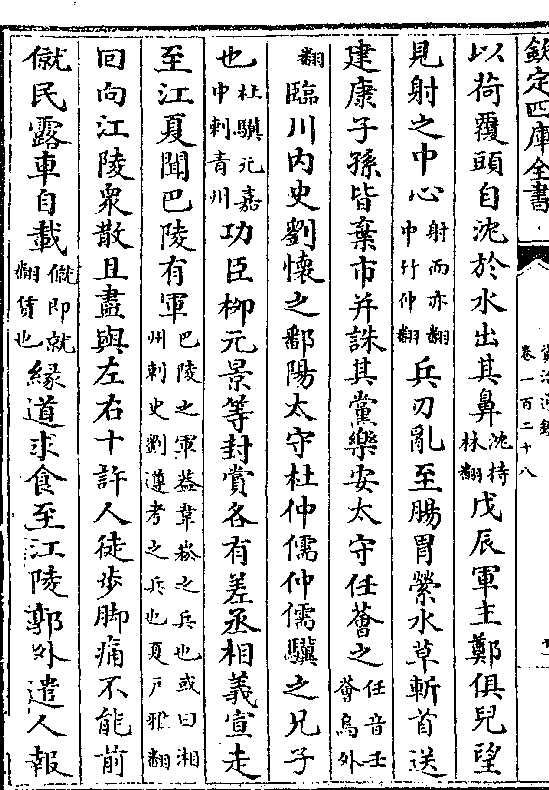 欽定四庫全書
資治通鑑
卷一百二十八
十一
以荷覆頭自沈於水出其鼻沈持林翻戊辰軍主鄭俱兒望
見射之中心射而亦翻中竹仲翻兵刃亂至腸胃縈水草斬首送
建康子孫皆棄市并誅其黨樂安太守任薈之任音壬薈烏外
翻臨川内史劉懷之鄱陽太守杜仲儒仲儒驥之兄子
也杜驥元嘉中刺青州功臣柳元景等封賞各有差丞相義宣走
至江夏聞巴陵有軍巴陵之軍葢韋崧之兵也或曰湘州刺史劉遵考之兵也夏戸雅翻
回向江陵衆散且盡與左右十許人徒歩脚痛不能前
僦民露車自載僦即就翻賃也縁道求食至江陵郭外遣人報